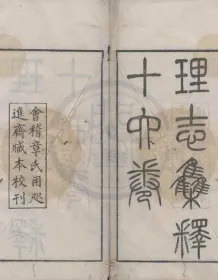 理志集釋
十四卷
會稽章氏用咫
進齋臧本校刊